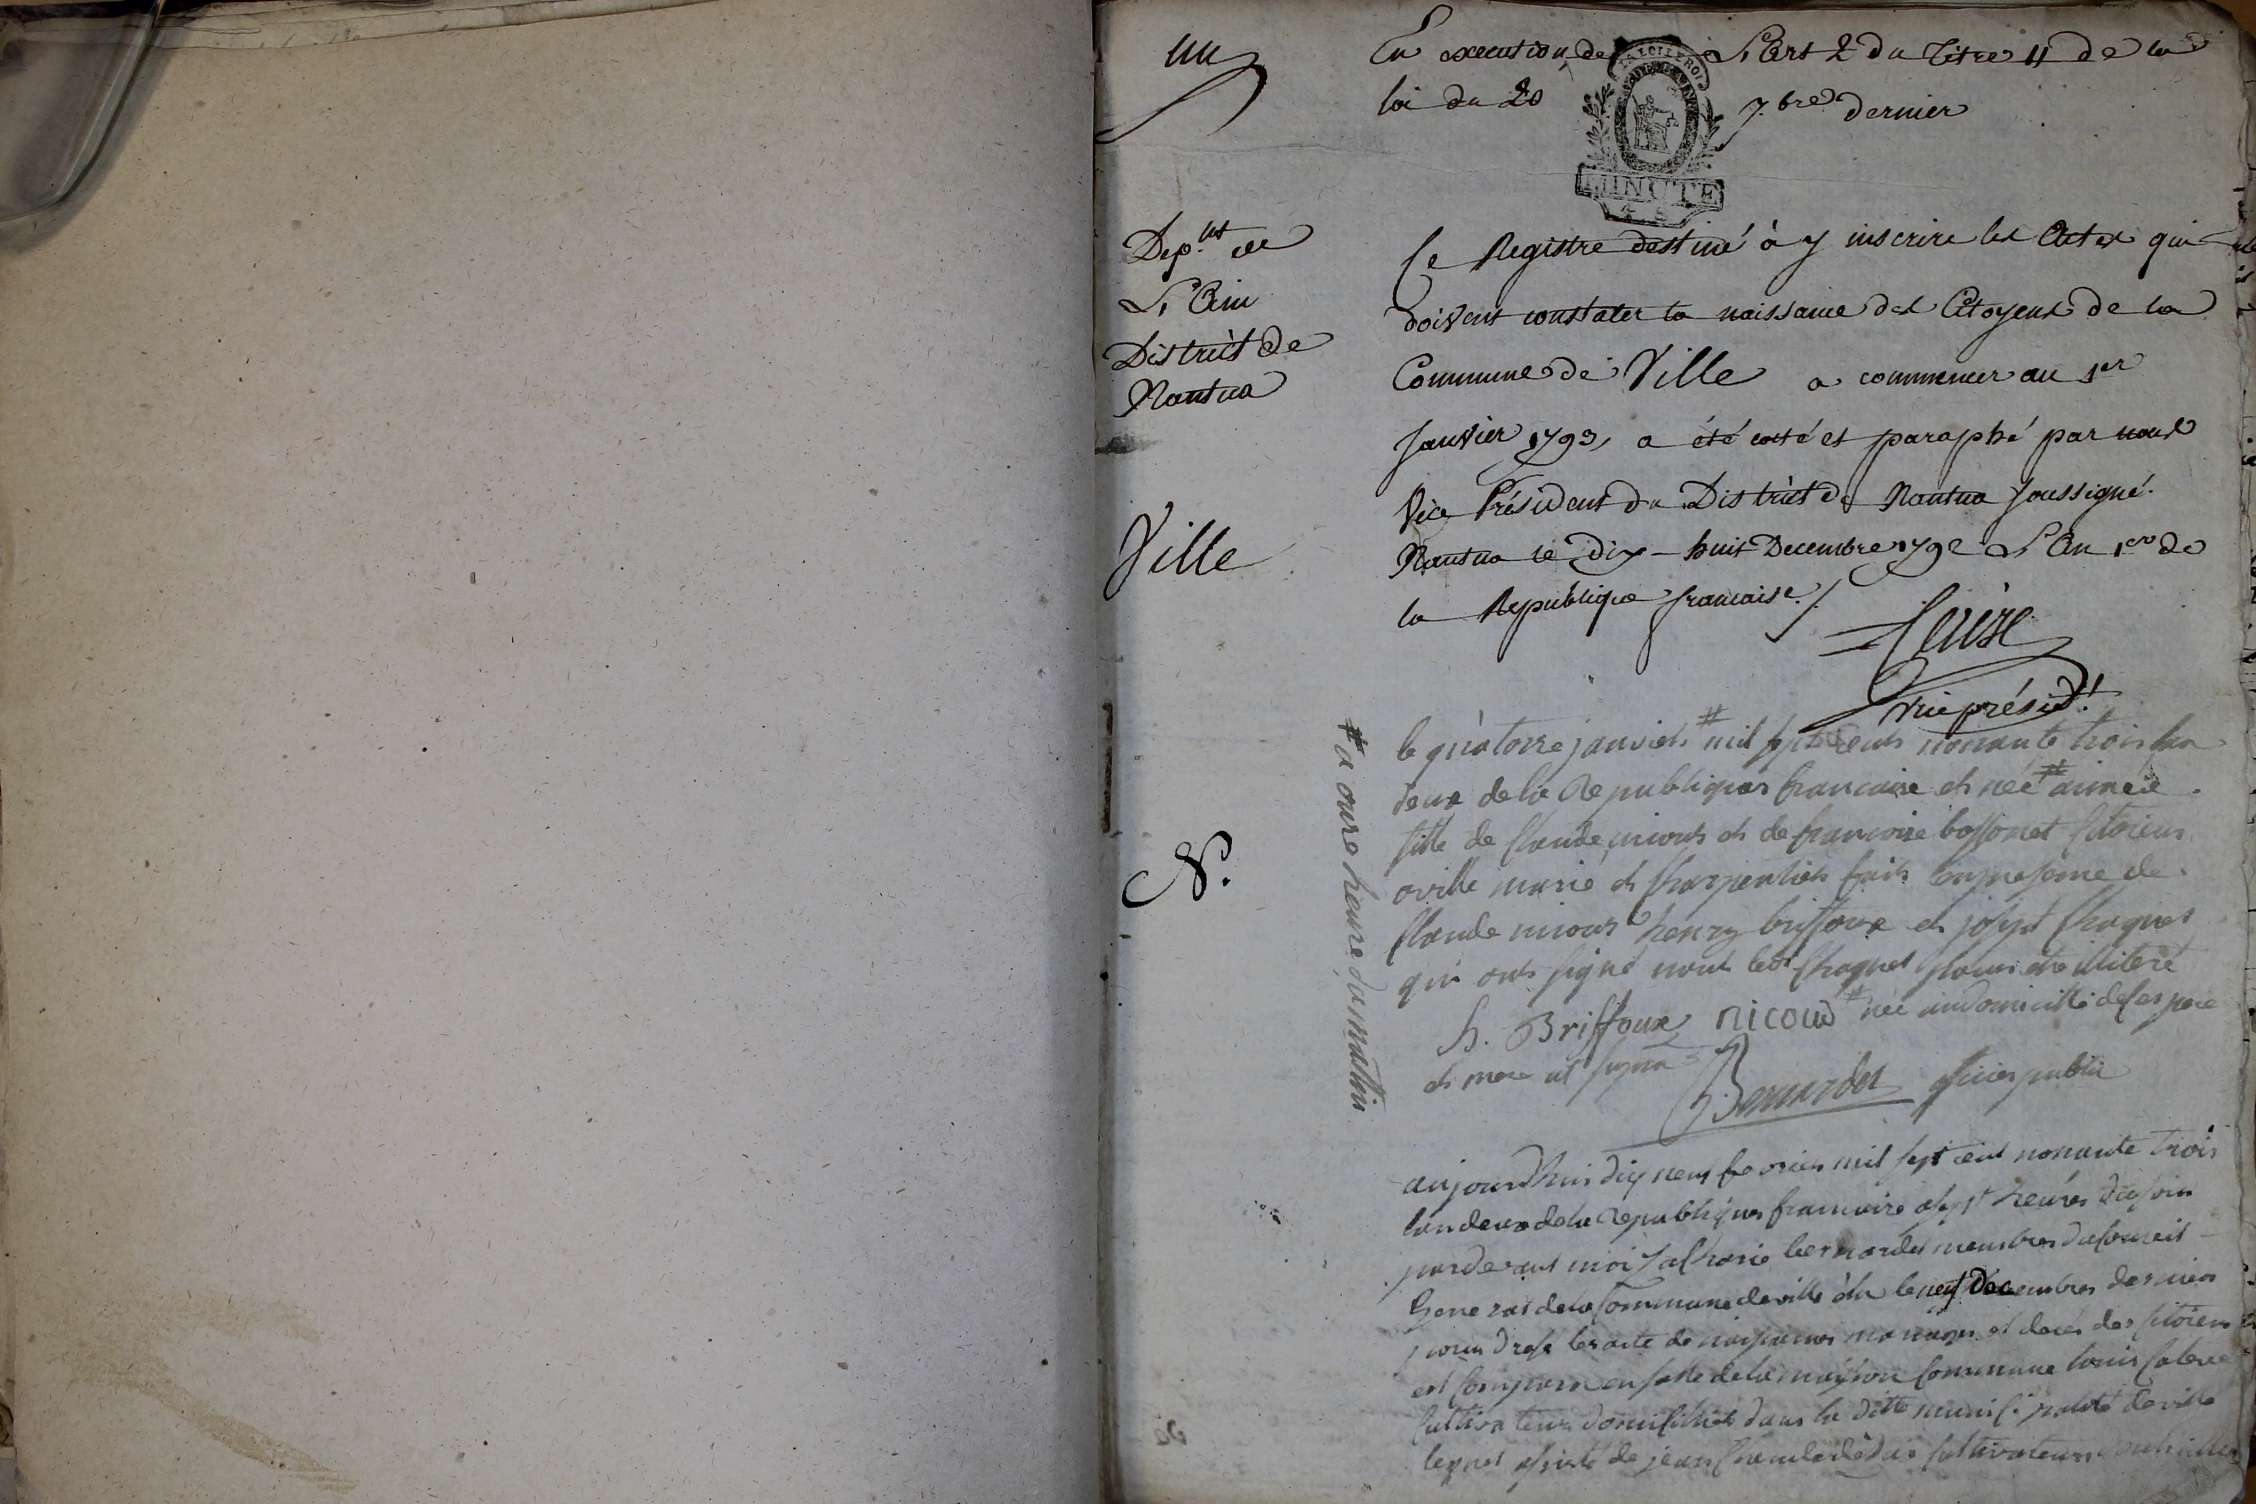 un
En execution de L'Art 2 du Titre 11 de la
loi du 20 7.bre dernier
LA LOI LE ROI
MINUTE
Dep.nt de
L'Ain
District de
Nantua
Ville
Ce Registre destiné à y inscrire les Actes qui
doivent constater la naissance des Citoyens de la
Commune de Ville a commencer au 1er
Janvier 1793, a été coté et paraphé par nous
Vice Président du District de Nantua soussigné.
Nantua le dix-huit Decembre 1792 L'An 1er de
la Republique francaise./.
vice présid.t
N.
# a onze heure du matin
le quatorze janvier # mil sept cents nonante trois lan
deux de la Republique francaise et née # aimée
fille de Claude nicoud et de francoise bossonet Citoiens
a ville marie et Charpentier fait en presence de
Claude nicoud henry briffoux et joseph
qui ont signé non led pour etre illiteré
h. Briffoux nicoud # née au domicille de ses pere
et mere
Bernardet officier public
aujourdhui dix neuf fevrier mil sept cent nonante trois
lan deux de la Republique francaise a sept heures du soir
pardevant moi Zacharie bernardet membre du Conseil
General de la Commune de ville élu le neuf Decembre dernier
pour dresse les acte de naissances mariages et decés des Citoiens
est Comparu en salle de la maison Commune louis
Cultivateur domicilié dans la ditte municipalité de ville
lequel assisté de jean Claude cultivateur